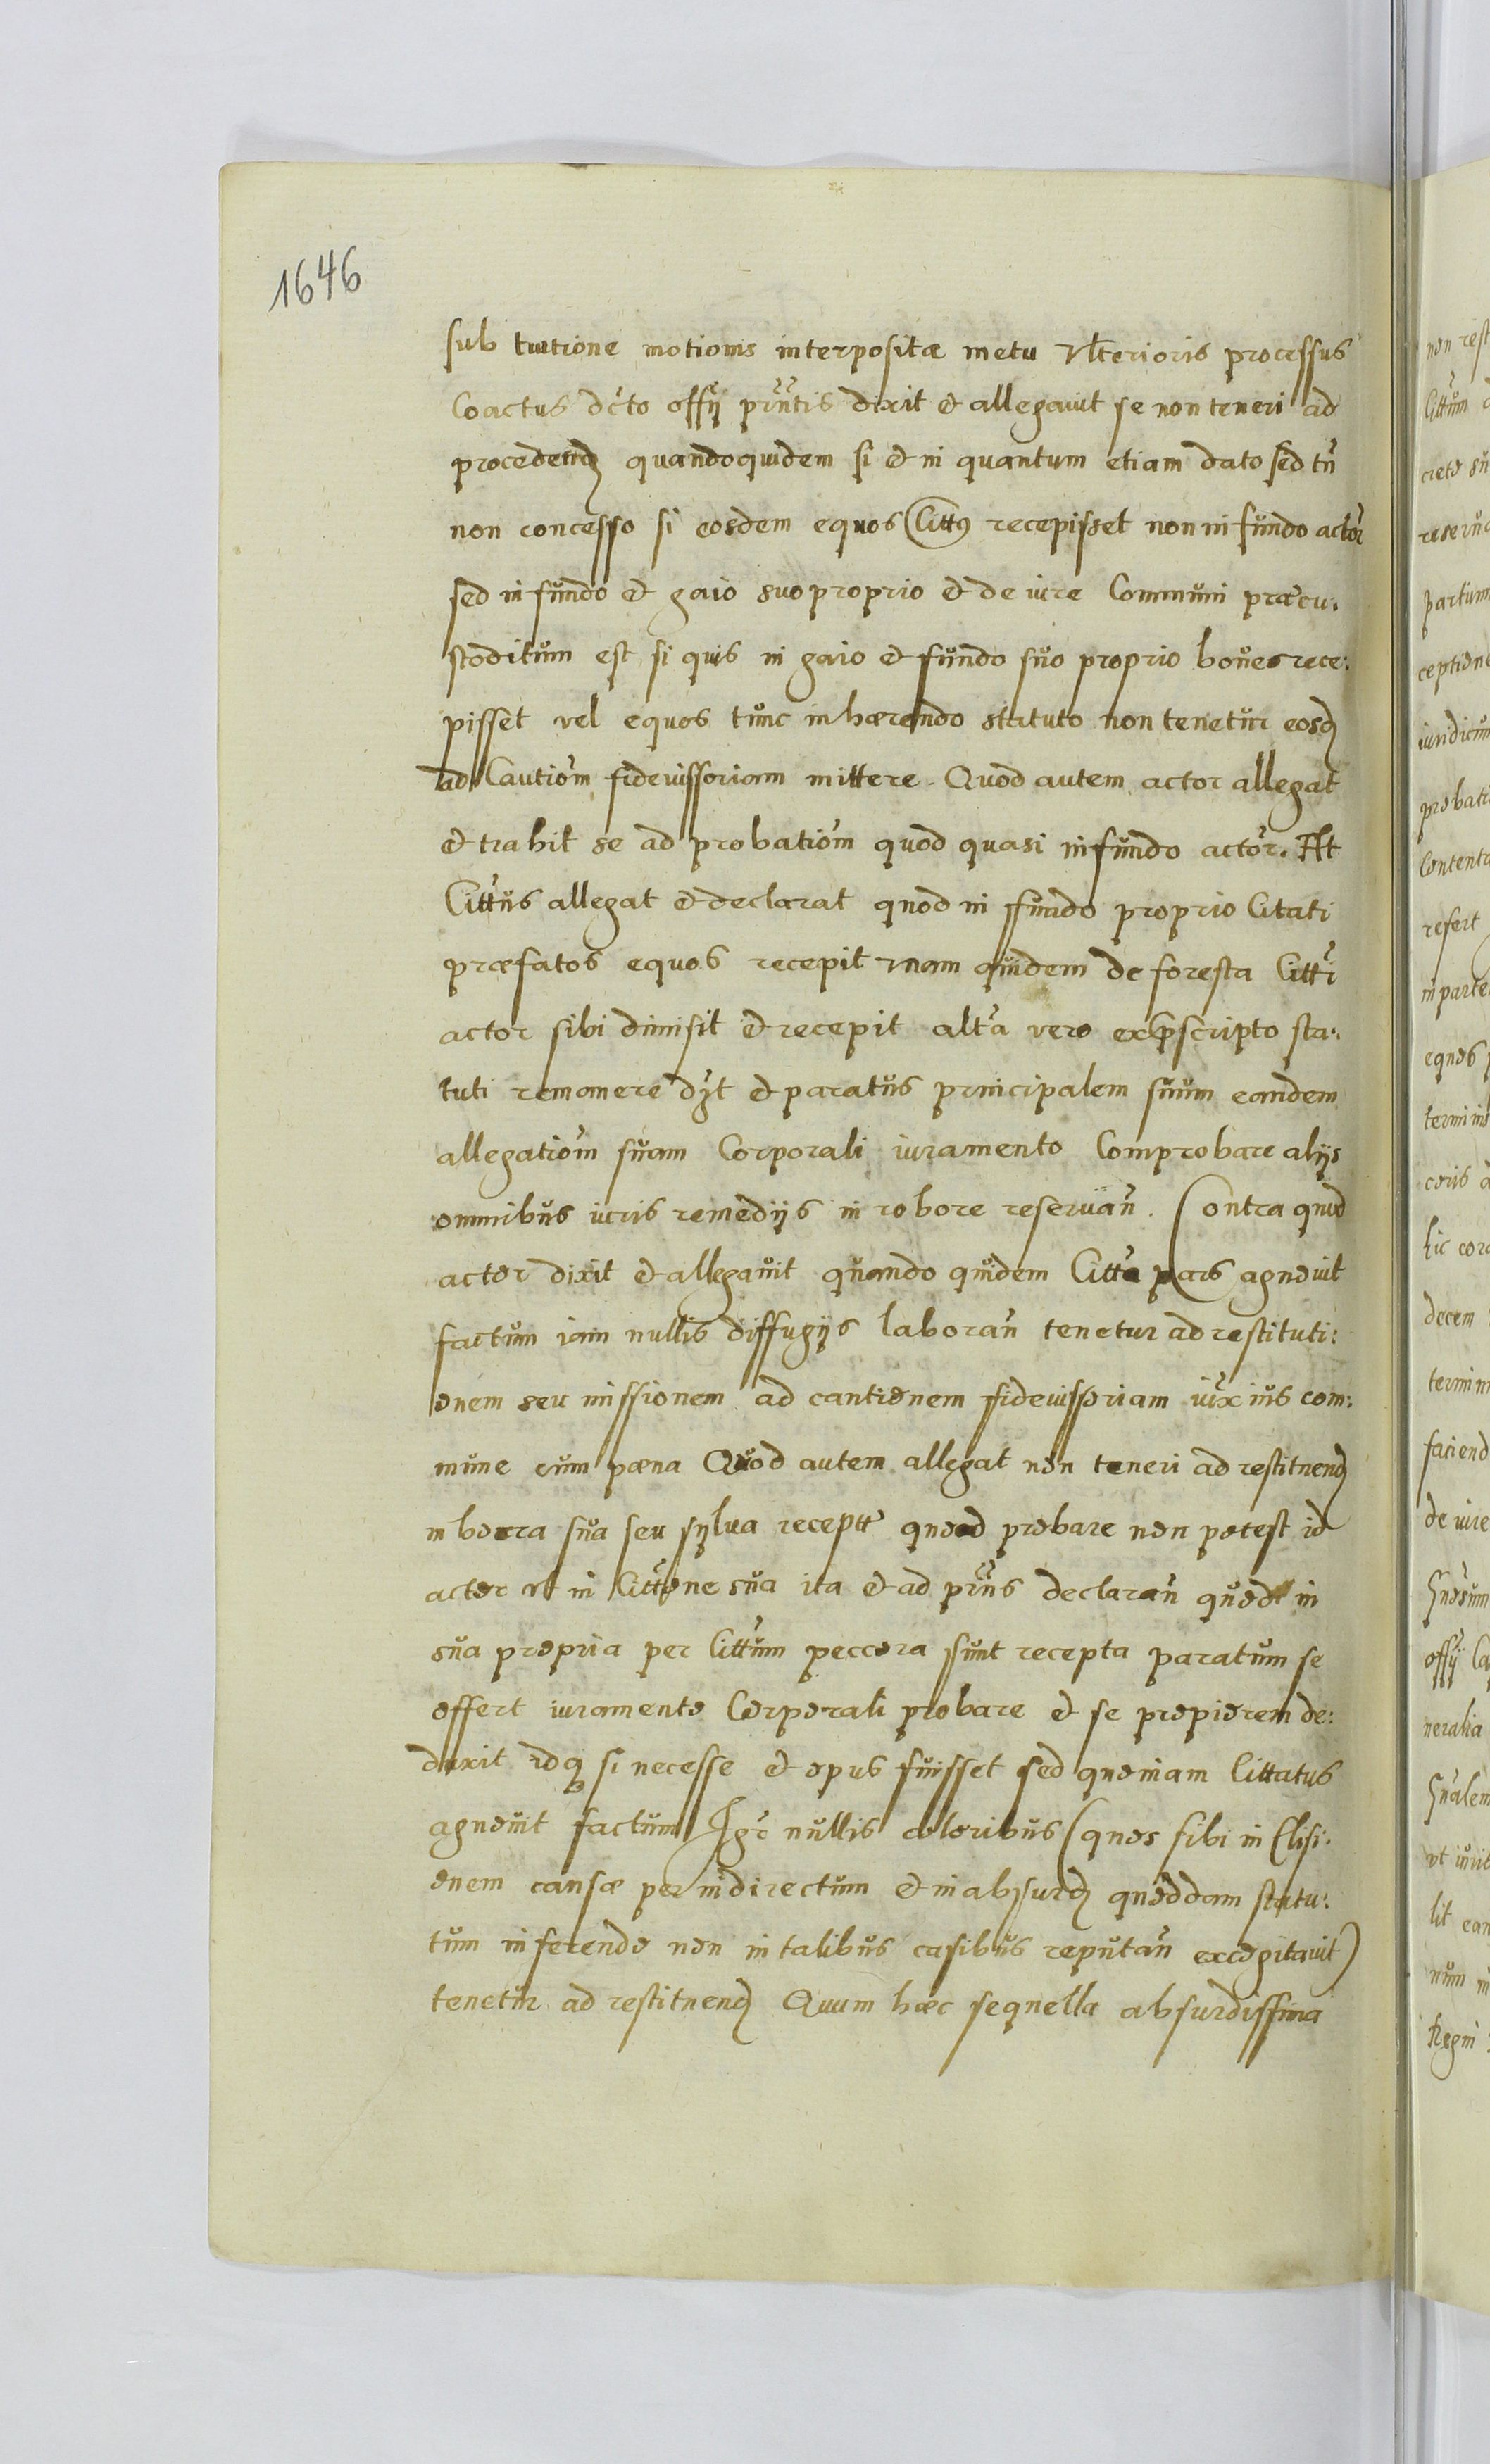 1646
sub tuitione motionis interpositæ metu Ulterioris processus
Coactus dcto offÿ prntis dixit et allegavit se non teneri ad
procedend quandoquidem si et in quantum etiam dato sed tn
non concesso si eosdem equos Citt9 recepisset non in fundo actor
sed in fundo et gaio suo proprio et de iure Communi præcu:
stoditum est si quis in gaio et fundo suo proprio boves rece:
pisset vel equos tunc inhærendo statuto non tenetur eosd
ad Cautiom fideiussoriam mittere. Quod autem actor allegat
et trahit se ad probatiom quod quasi in fundo actor. At
Cittus allegat et declarat quod in fundo proprio Citati
præfatos equos recepit unam quidem de foresta Citti
actor sibi dimisit et recepit altra vero ex pscripto sta:
tuti remanere dÿt et paratus principalem suum eandem
allegatiom suam Corporali iuramento Comprobare alÿs
omnibus iuris remedÿs in robore reservan. Contra quod
actor dixit et allegavit quando quidem Citta pars agnovit
factum iam nullis diffugÿs laboran tenetur ad restituti:
onem seu missionem ad cautionem fideiussoriam iux ius com:
mune cum pæna Quod autem allegat non teneri ad restituend
in borra sua seu sylva receptt quod probare non potest id
actor ut in Cittone sua ita et ad prns declaran quod in
sua propria per Cittum peccora sunt recepta paratum se
offert iuramento Corporali probare et se propiorem de:
duxit idq si necesse et opus fuisset sed quoniam Cittatus
agnovit factum Igr nullis coloribus (quos sibi in Elisi:
onem causæ per indirectum et in absurd quoddam statu:
tum inferendo non in talibus casibus reputan excogitavit)
tenetur ad restituend Quum hæc sequella absurdissima